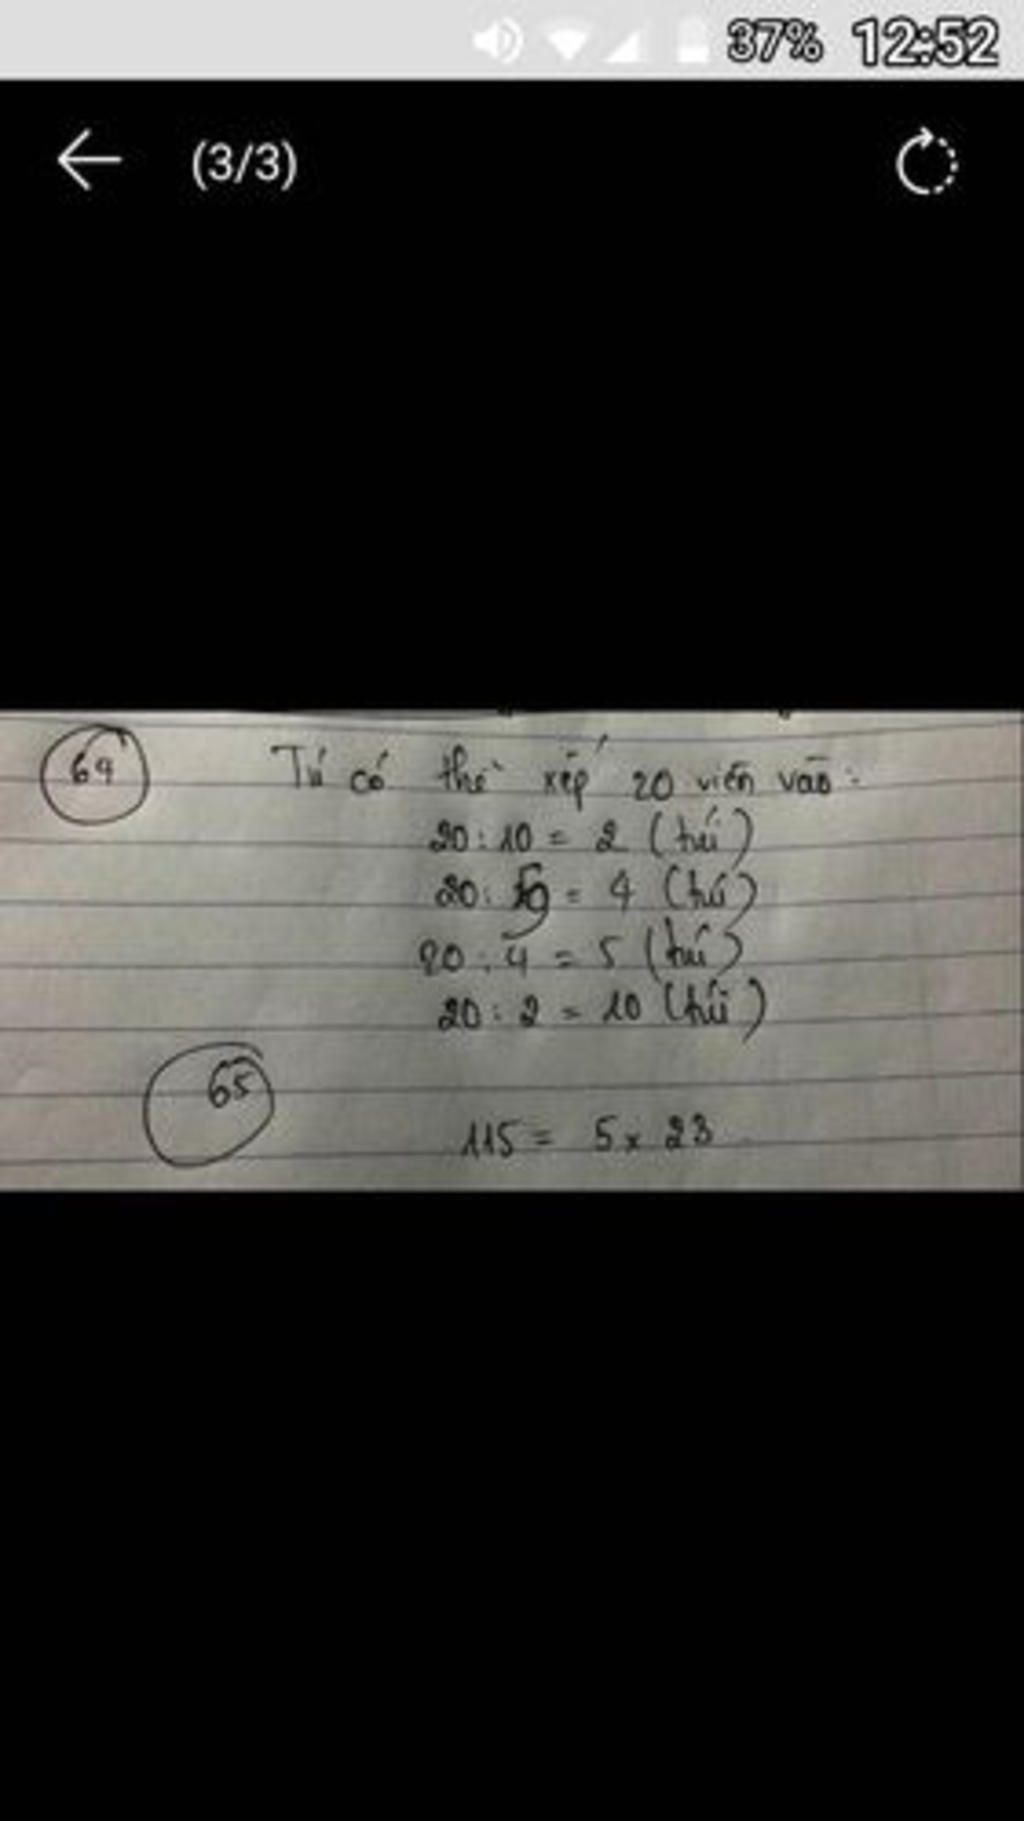 37% 12:52
(3/3)
64 Tú có thể xếp 20 viên vào:
20 : 10 = 2 (túi)
20 : = 4 (túi)
20 : 4 = 5 (túi)
20 : 2 = 10 (túi)
65
115 = 5 x 23